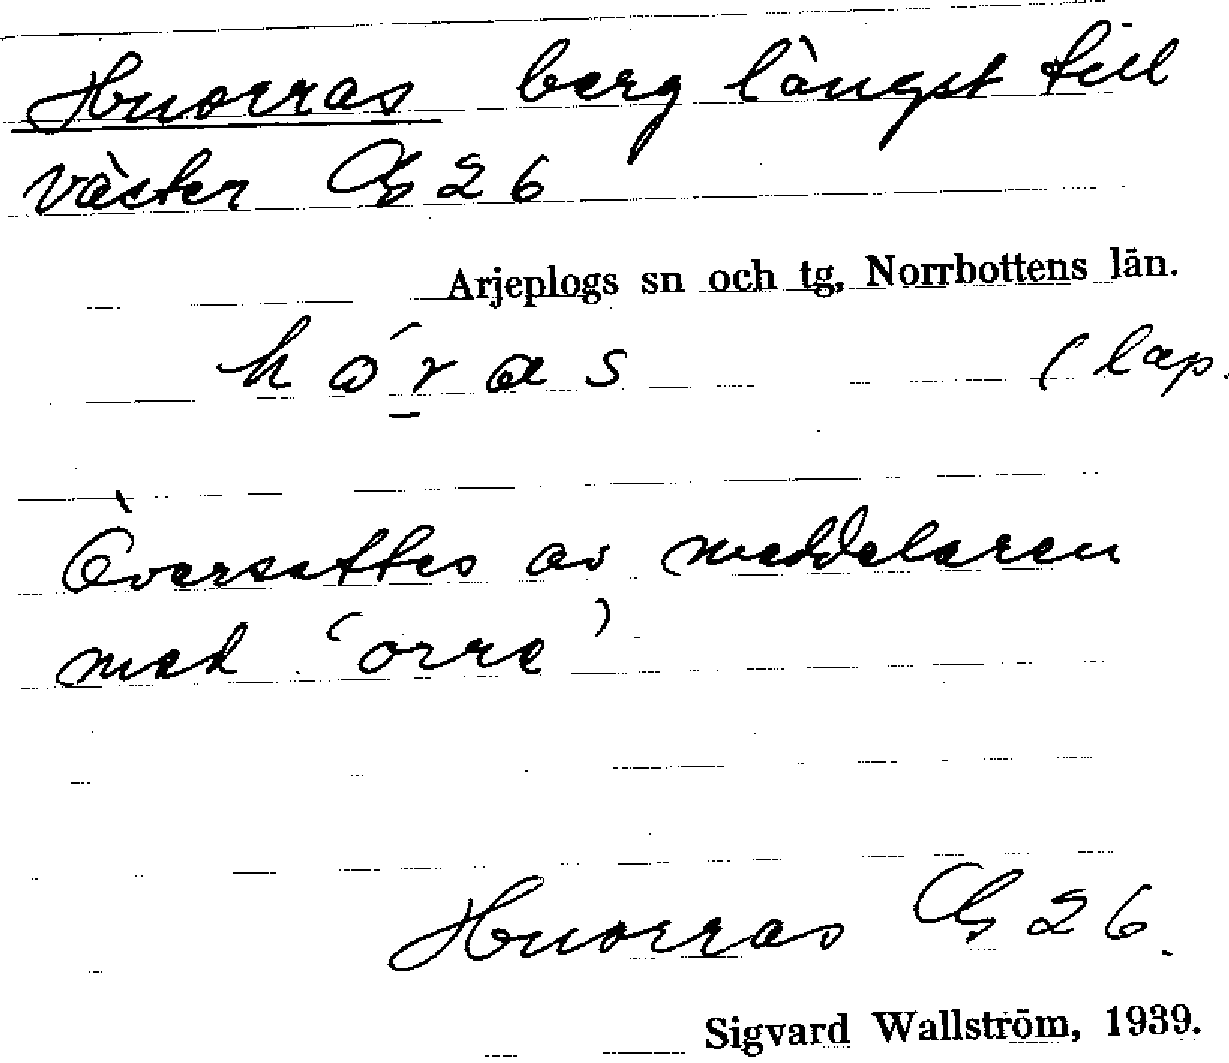 Huorras berg längst till
väster G 26
Arjeplogs sn och tg, Norrbottens län.
hór̲as (lap.
Översattes av meddelaren
med 'orre'
Huorras G 26.
Sigvard Wallström, 1939.